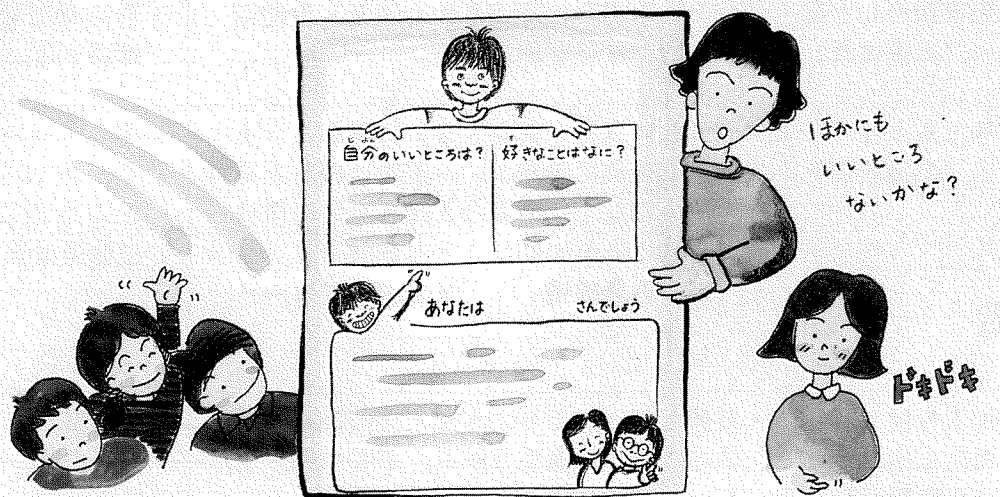 自分のいいところは?
好きなことはなに?
あなたは さんでしょう
ほかにも
いいところ
ないかな?
ドキドキ